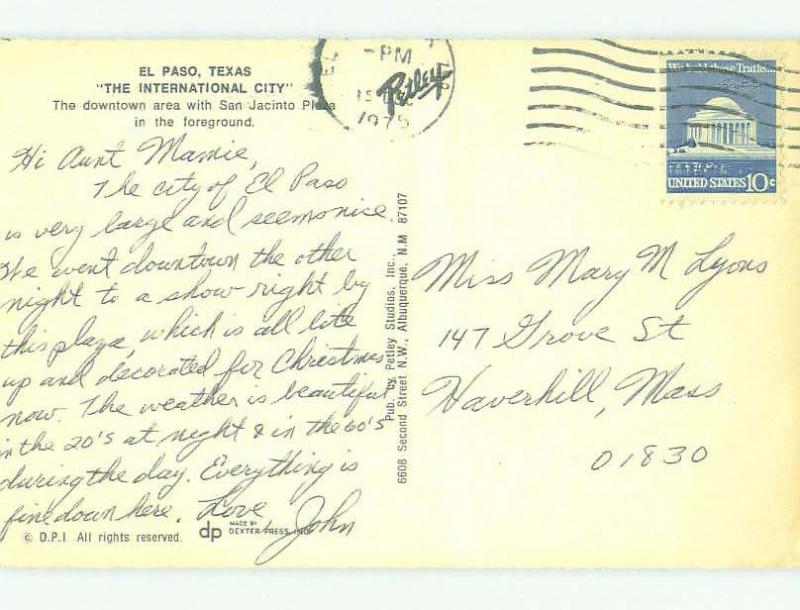 EL PASO, TEXAS
"THE INTERNATIONAL CITY"
The downtown area with San Jacinto Plaza
in the foreground.
Hi Aunt Mamie,
The city of El Paso
is very large and seems nice.
We went downtown the other
night to a show right by
this plaza, which is all lite
up and decorated for Christmas
now. The weather is beautiful
in the 20's at night & in the 60's
during the day. Everything is
fine down here. Love,
John
© D.P.I All rights reserved.
dp MADE BY
DEXTER PRESS, INC.
Pub. by Petley Studios, Inc.,
6608 Second Street N.W., Albuquerque, N.M 87107
PM
1975
Petley
We hold these Truths...
UNITED STATES 10c
Miss Mary M Lyons
147 Grove St
Haverhill, Mass
01830